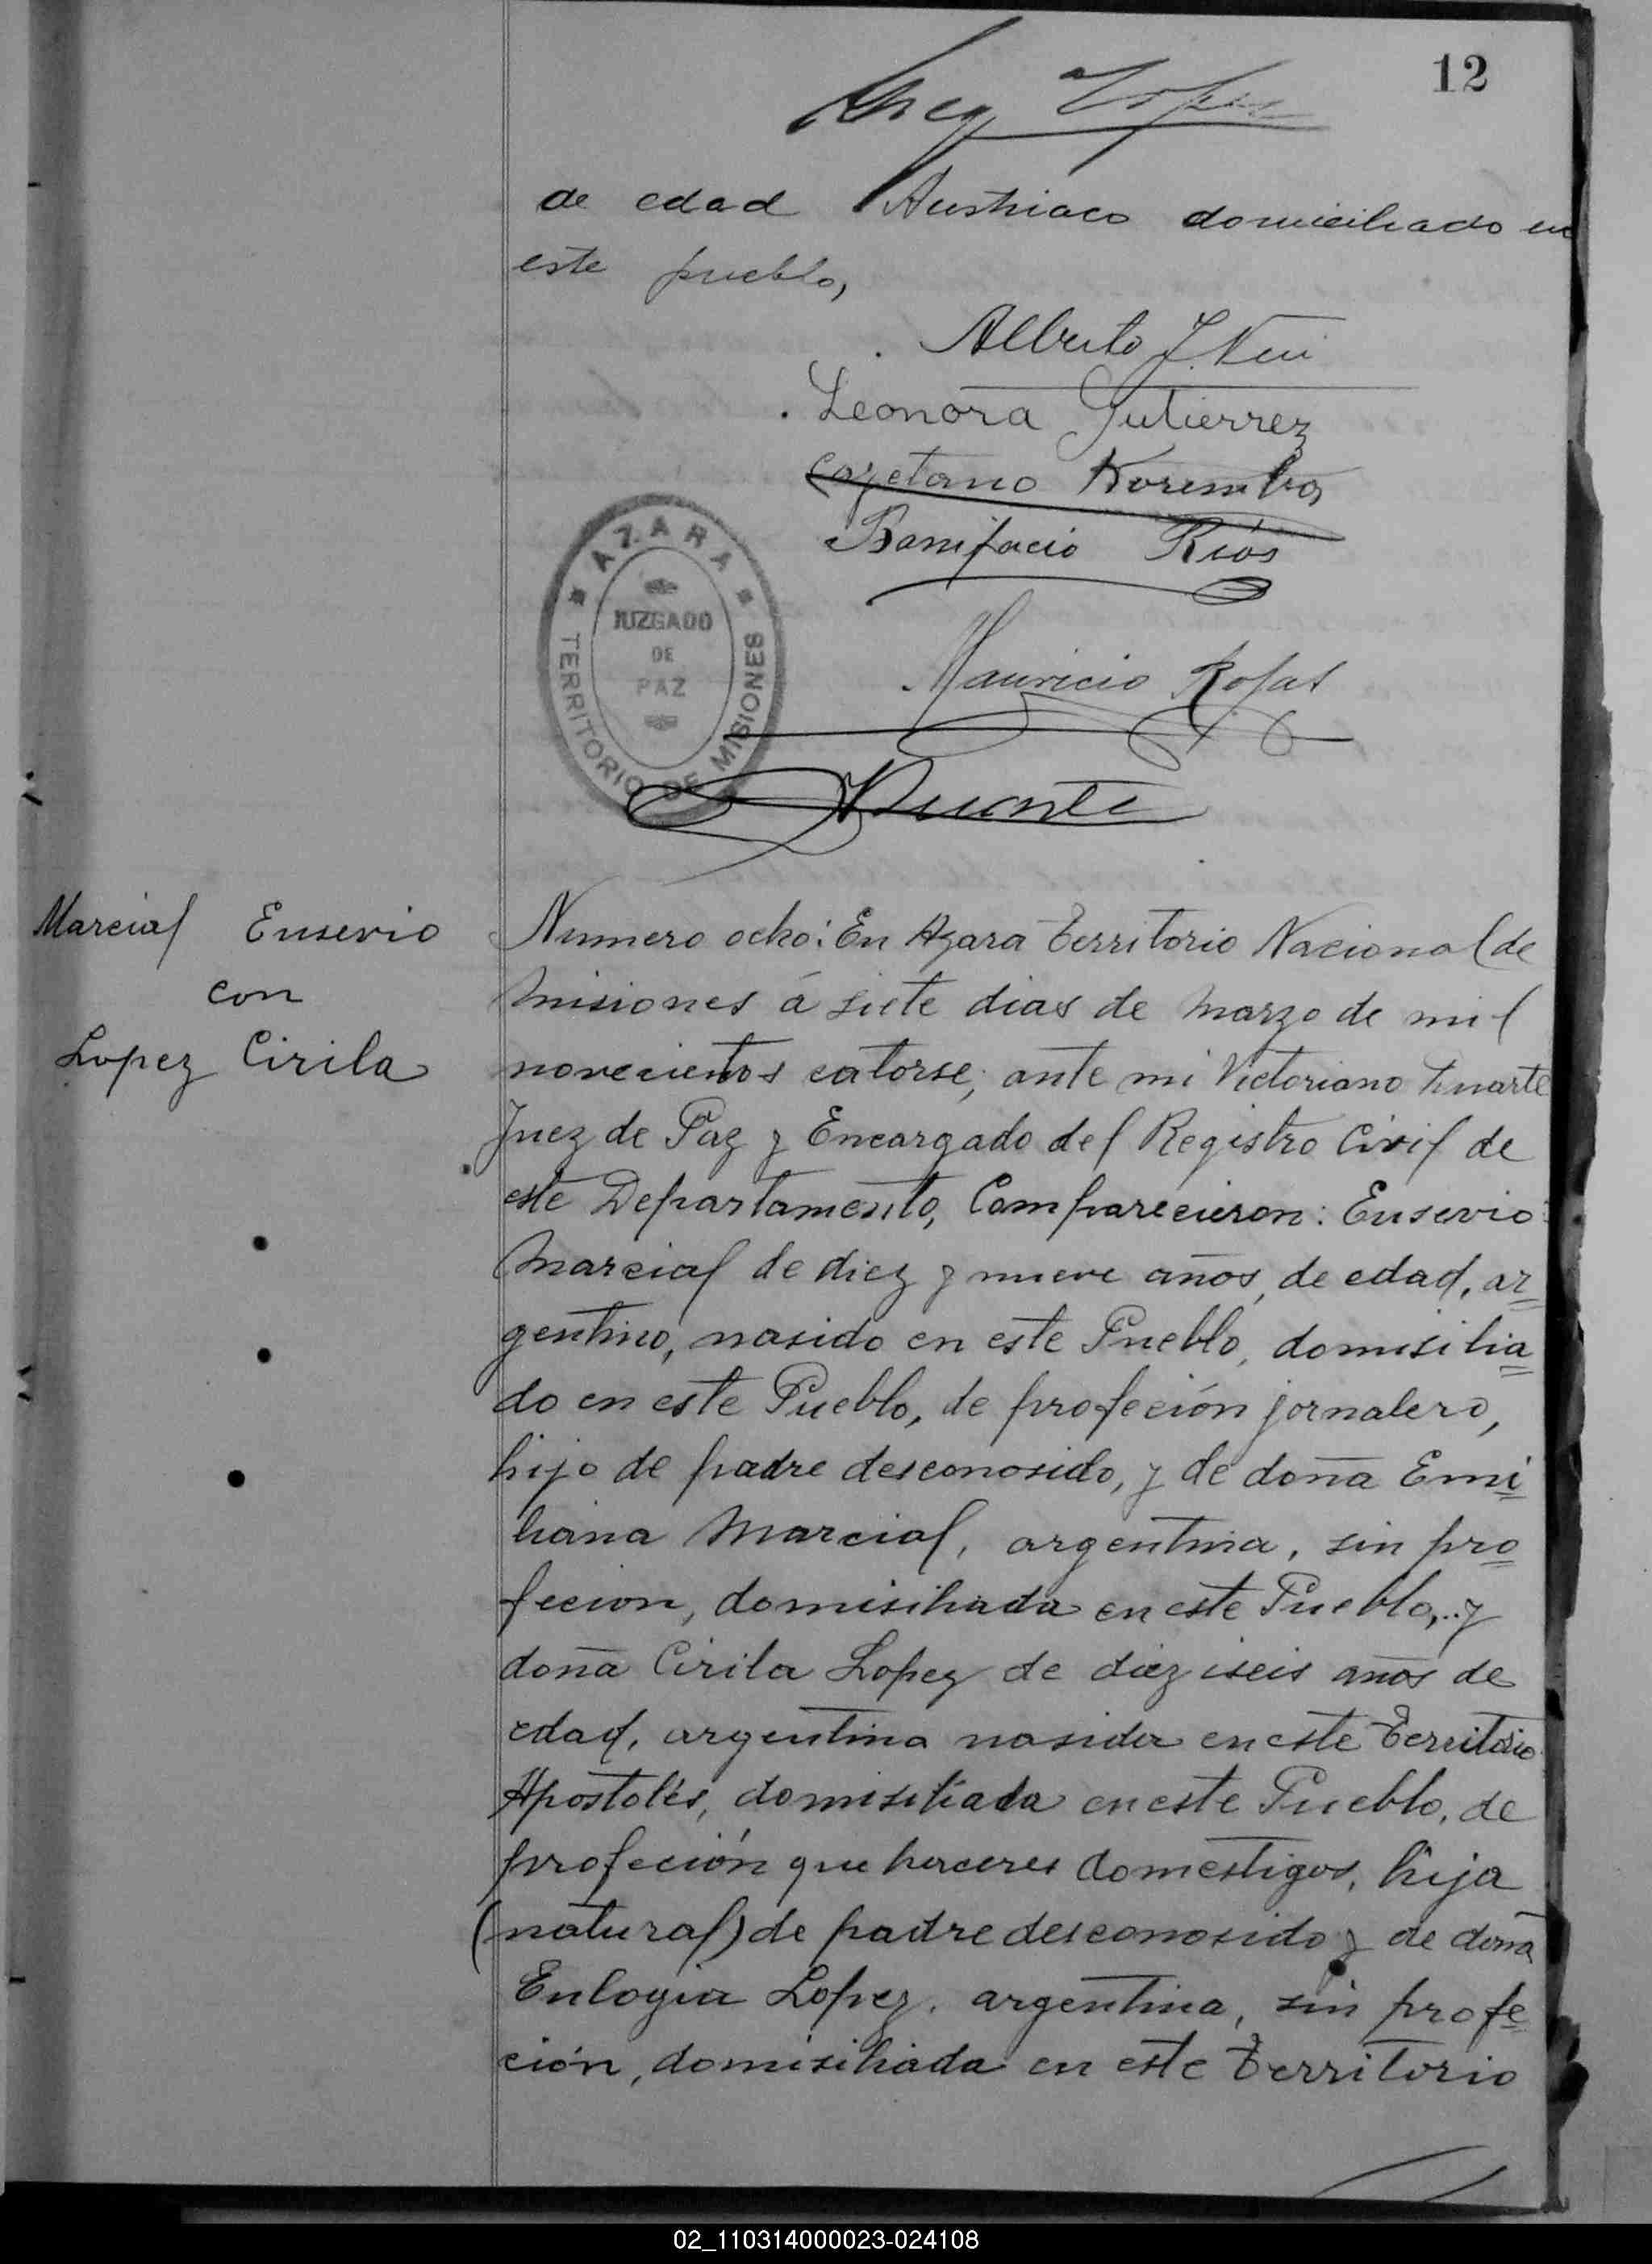 12
Lopez
de edad Austriaco domiciliado en
este pueblo,
Alberto J.
Leonora Gutierrez
Cayetano
Bonifacio Ríos
AZARA
JUZGADO
DE
PAZ
TERRITORIO DE MISIONES
Mauricio Rojas
Marcial Eusevio
con
Lopez Cirila
Numero ocho: En Azara Territorio Nacional de
Misiones á siete dias de Marzo de mil
novecientos catorse, ante mi Victoriano
Juez de Paz y Encargado del Registro Civil de
este Departamento, Comparecieron: Eusevio
Marcial de diez y nueve años, de edad, ar
gentino, nasido en este Pueblo, domisilia
do en este Pueblo, de profeción jornalero,
hijo de padre desconosido, y de doña Emi
liana Marcial, argentina, sin pro
fecion, domisiliada en este Pueblo,.. y
doña Cirila Lopez de diez iseis años de
edad, argentina nasida en este Territorio
Apostolés, domisiliada en este Pueblo, de
profeción que haceres domestigos, hija
(natural) de padre desconosido y de doña
Eulogia Lopez, argentina, sin profe
ción, domisiliada en este Territorio
02_110314000023-024108